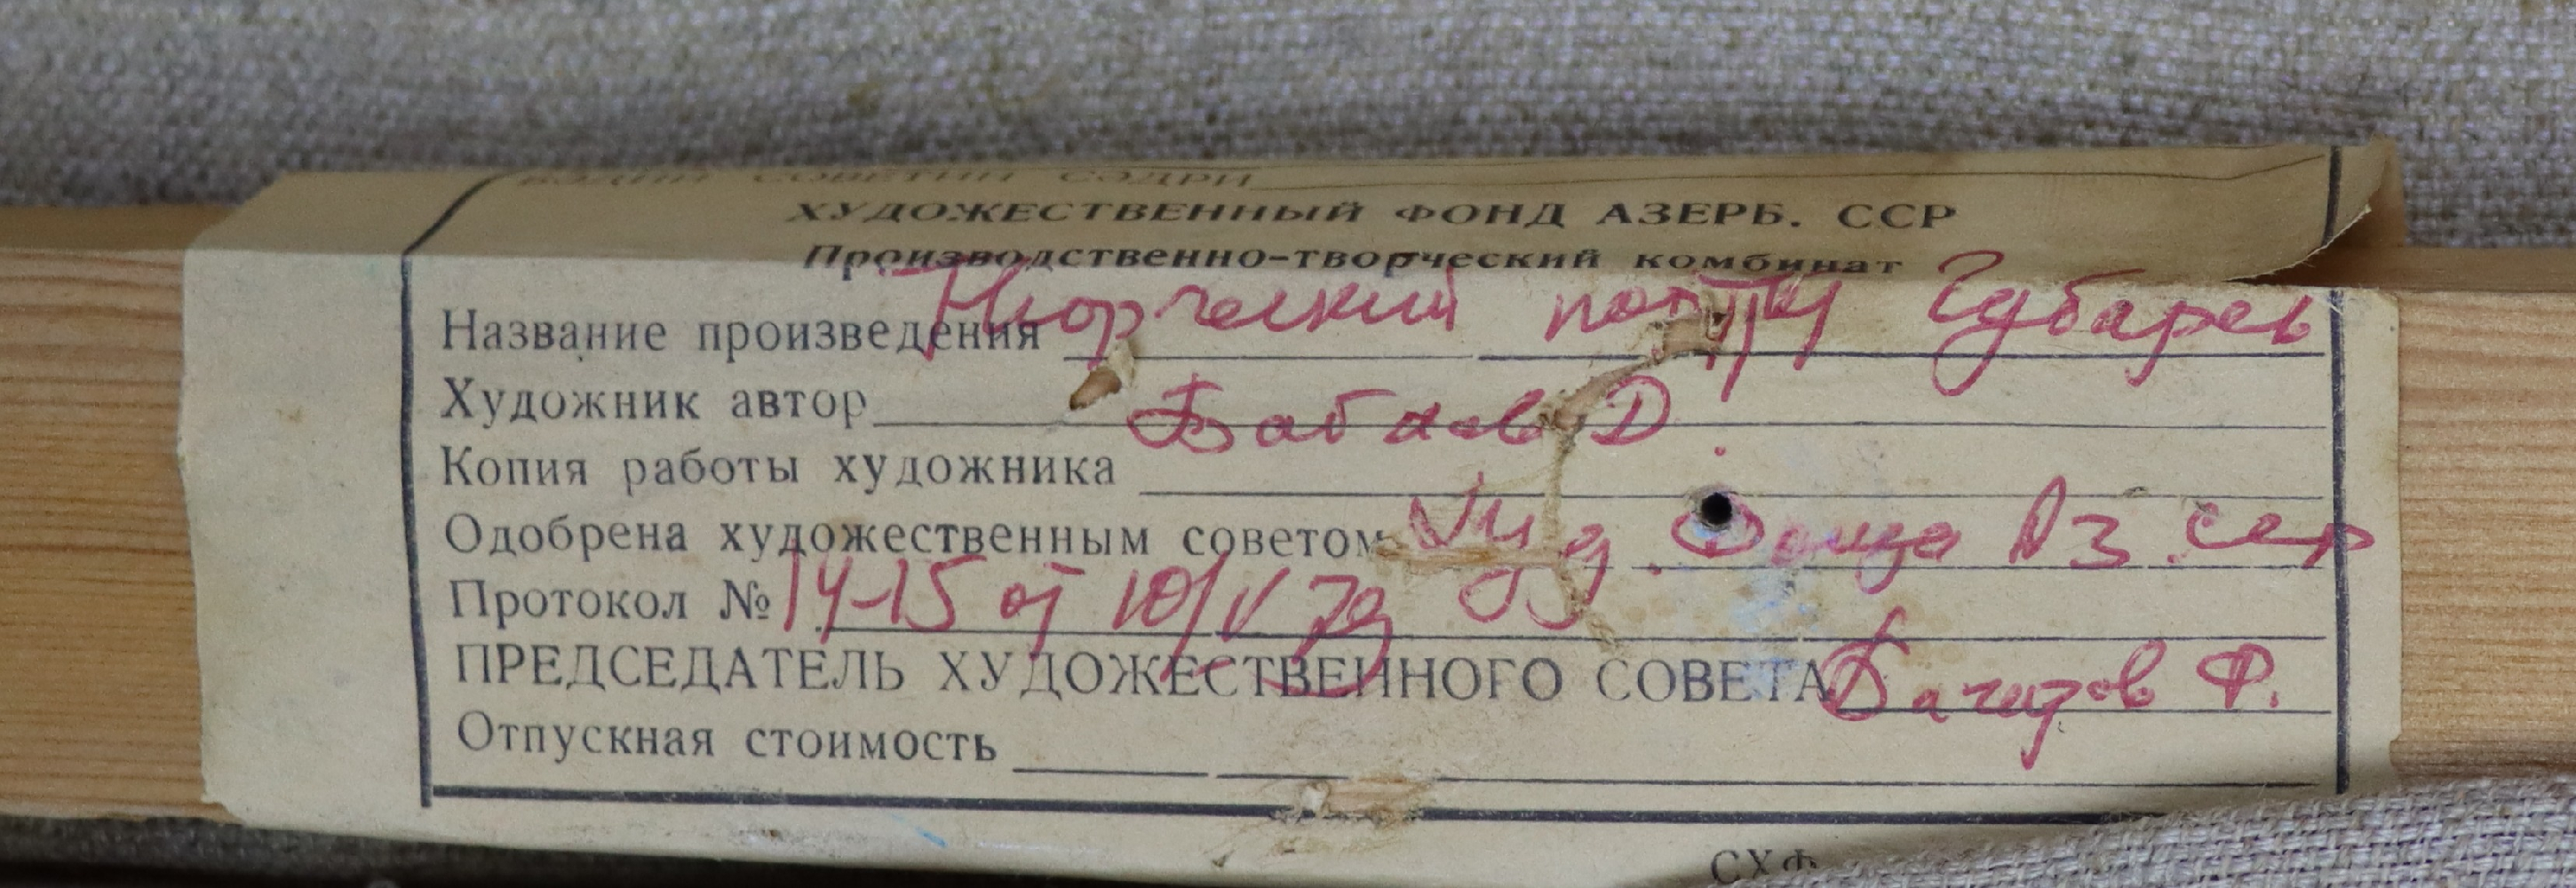 БӘДИИ СОВЕТИН СӘДРИ
ХУДОЖЕСТВЕННЫЙ ФОНД АЗЕРБ. ССР
Производственно-творческий комбинат
Название произведения Творческий порт Губарев
Художник автор Бабаев Д.
Копия работы художника
Одобрена художественным советом Худ. Фонда Аз. сср
Протокол № 14-15 от 10/V
ПРЕДСЕДАТЕЛЬ ХУДОЖЕСТВЕННОГО СОВЕТА Багиров Ф.
Отпускная стоимость
СХФ